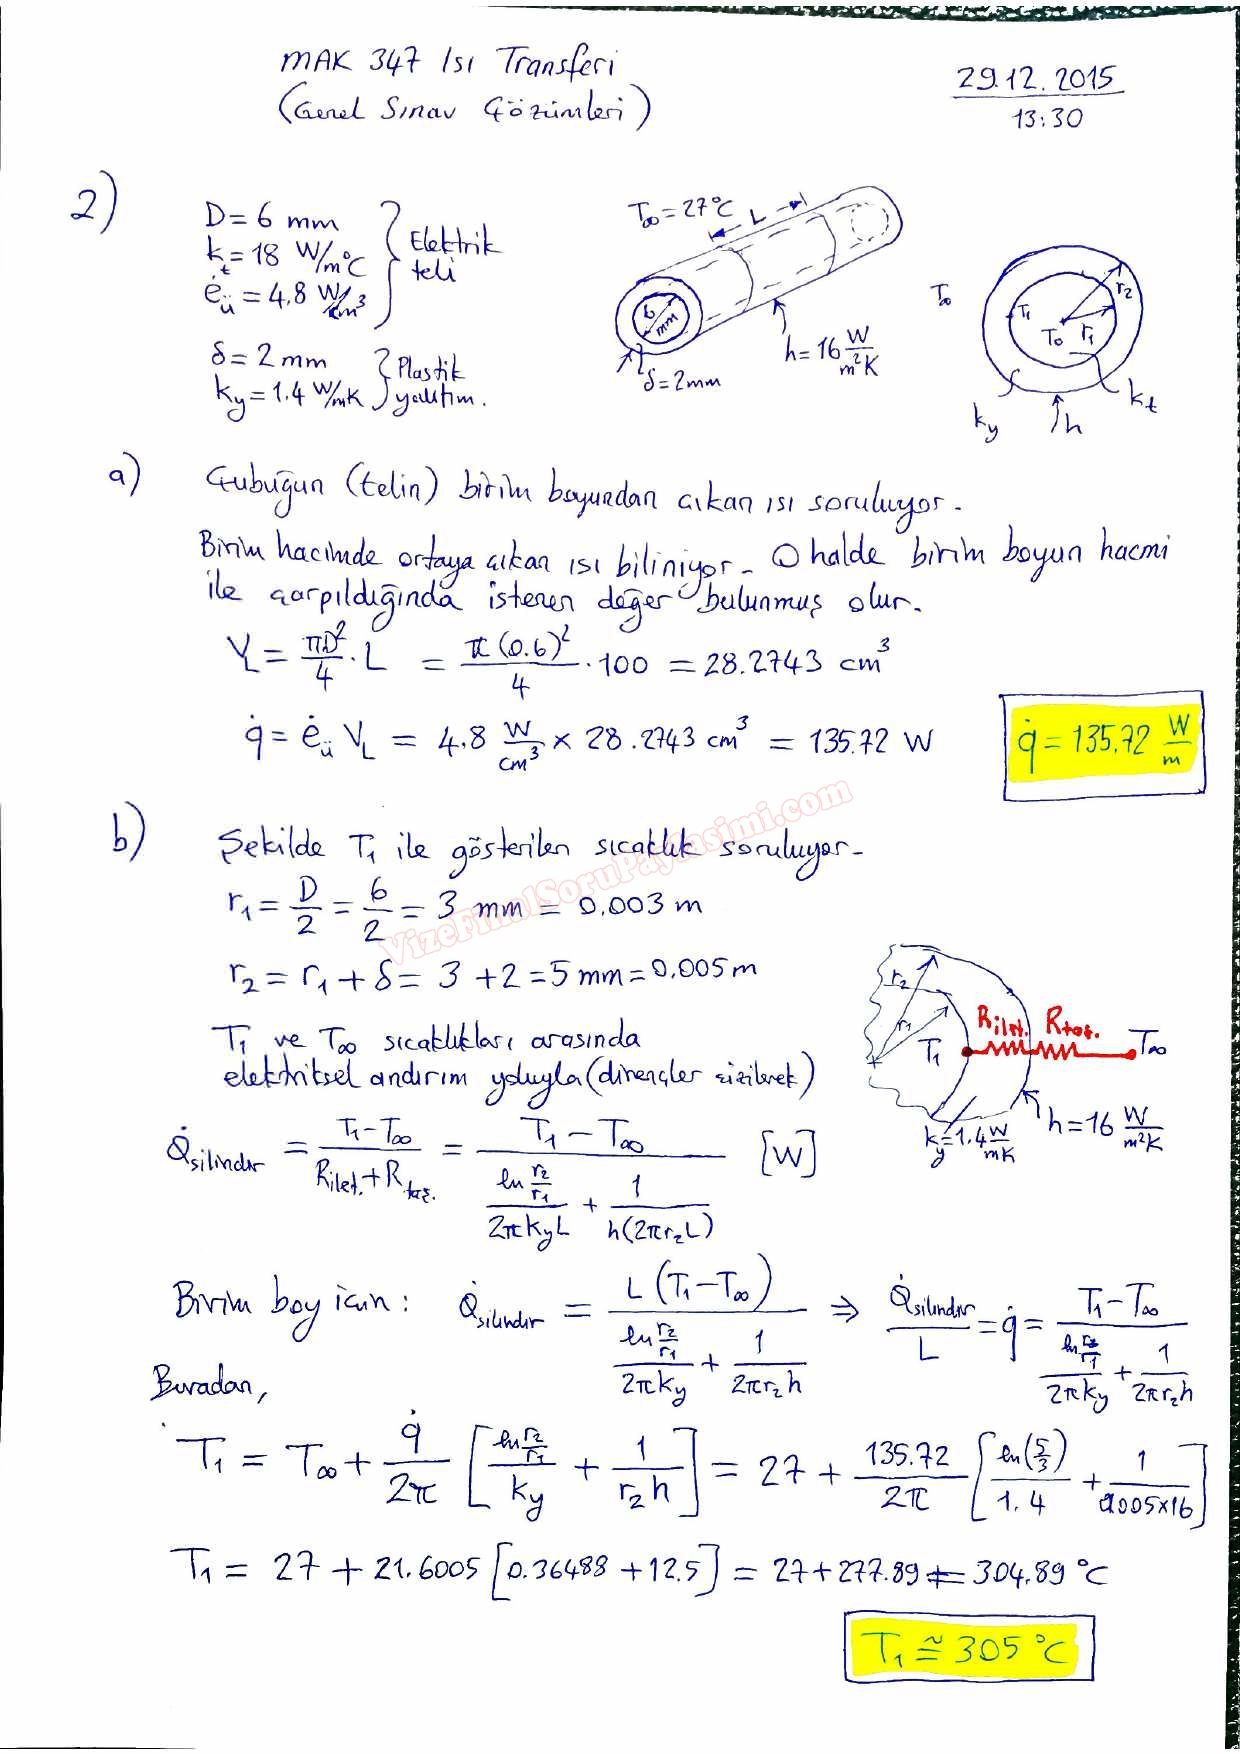 MAK 347 Isı Transferi
(Genel Sınav Çözümleri)
29.12.2015
13:30
2)
D = 6 mm
k_t = 18 W/m°C
ė_ü = 4.8 W/cm³
} Elektrik teli
δ = 2 mm
k_y = 1.4 W/mK
} Plastik yalıtım.
T∞ = 27°C
L
6 mm
δ = 2mm
h = 16 W/m²K
T∞
T₁
T₀
r₁
r₂
k_y
h
k_t
a) Çubuğun (telin) birim boyundan çıkan ısı soruluyor.
Birim hacimde ortaya çıkan ısı biliniyor. O halde birim boyun hacmi
ile çarpıldığında istenen değer bulunmuş olur.
V_L = πD²/4 · L = π(0.6)²/4 · 100 = 28.2743 cm³
q̇ = ė_ü V_L = 4.8 W/cm³ × 28.2743 cm³ = 135.72 W
q̇ = 135.72 W/m
b) Şekilde T₁ ile gösterilen sıcaklık soruluyor.
r₁ = D/2 = 6/2 = 3 mm = 0.003 m
r₂ = r₁ + δ = 3 + 2 = 5 mm = 0.005 m
T₁ ve T∞ sıcaklıkları arasında
elektriksel andırım yoluyla (dirençler çizilerek)
r₂
r₁
T₁
R_ilet. R_taş.
T∞
k_y = 1.4 W/mK
h = 16 W/m²K
Q̇_silindir = (T₁ - T∞)/(R_ilet. + R_taş.) = (T₁ - T∞)/(ln(r₂/r₁)/(2πk_yL) + 1/(h(2πr₂L))) [W]
Birim boy için: Q̇_silindir = L(T₁ - T∞)/(ln(r₂/r₁)/(2πk_y) + 1/(2πr₂h)) ⇒ Q̇_silindir/L = q̇ = (T₁ - T∞)/(ln(r₂/r₁)/(2πk_y) + 1/(2πr₂h))
Buradan,
T₁ = T∞ + q̇/2π [ln(r₂/r₁)/k_y + 1/(r₂h)] = 27 + 135.72/2π [ln(5/3)/1.4 + 1/(0.005×16)]
T₁ = 27 + 21.6005 [0.36488 + 12.5] = 27 + 277.89 = 304.89 °C
T₁ ≅ 305 °C
VizeFinalSoruPaylasimi.com